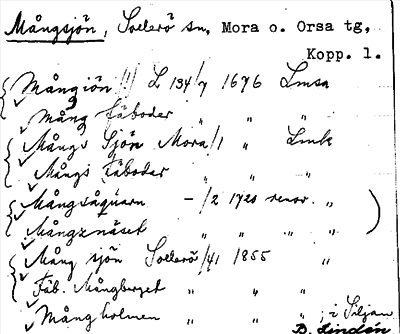 Mångsjön, Sollerö sn, Mora o. Orsa tg,
Kopp. l.
Mångiön (!) L 134/7 1676 Lmsa
Mång fäboder " " "
Mångs Sjön Mora/1 " Lmk
Mångs Fäboder " " "
Mångsåquarn -/2 1720 renov. "
Mångznäset " " " "
Mång sjön Sollerö/41 1855 "
Fäb. Mångberget " " "
Mångholmen " " " ; i Siljan
B. Lindén